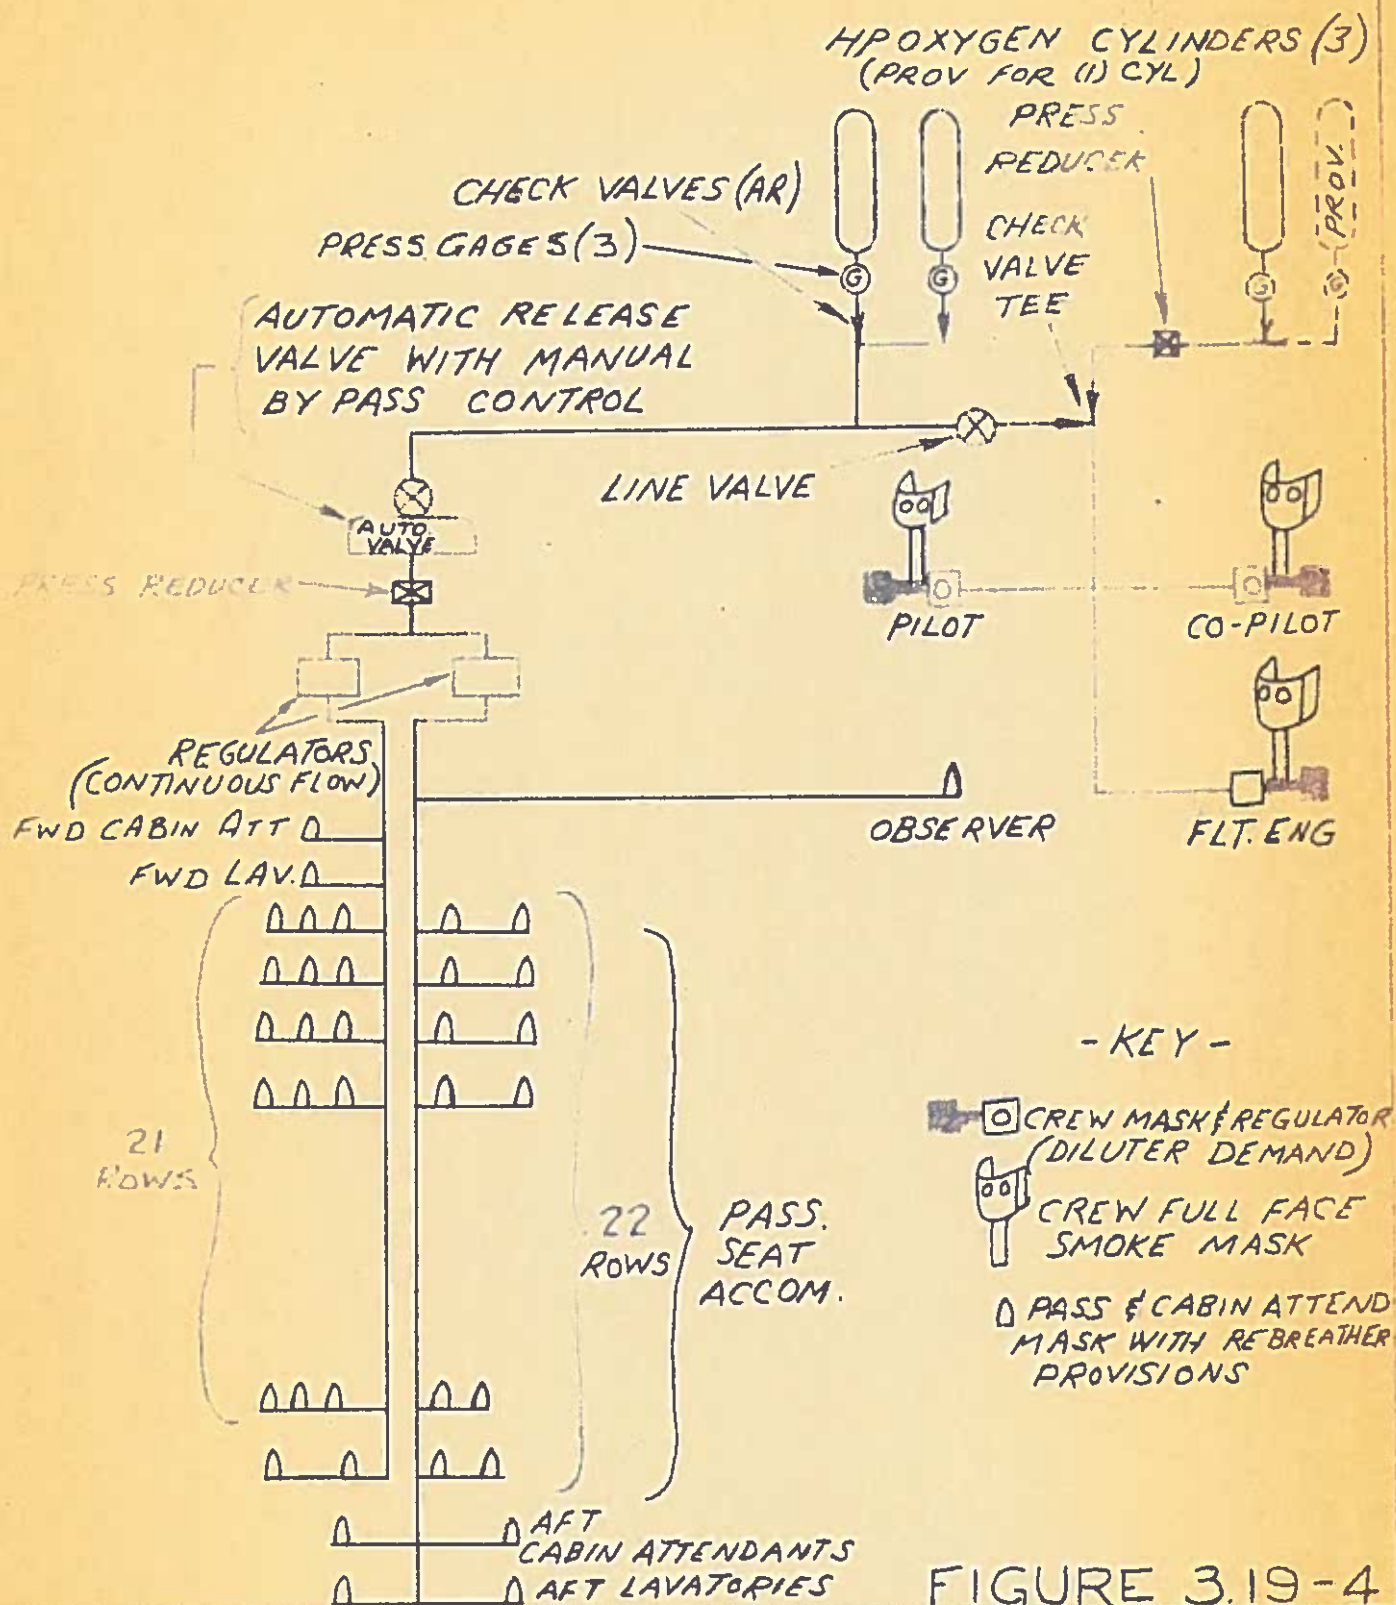 HP OXYGEN CYLINDERS (3)
(PROV FOR (1) CYL)
PRESS
REDUCER
PROV.
CHECK VALVES (AR)
PRESS. GAGES (3)
CHECK
VALVE
TEE
G
G
G
G
AUTOMATIC RELEASE
VALVE WITH MANUAL
BY PASS CONTROL
LINE VALVE
AUTO
VALVE
PRESS REDUCER
PILOT
CO-PILOT
REGULATORS
(CONTINUOUS FLOW)
FWD CABIN ATT
OBSERVER
FLT. ENG
FWD LAV.
21
ROWS
22
ROWS
PASS.
SEAT
ACCOM.
- KEY -
CREW MASK & REGULATOR
(DILUTER DEMAND)
CREW FULL FACE
SMOKE MASK
PASS & CABIN ATTEND
MASK WITH REBREATHER
PROVISIONS
AFT
CABIN ATTENDANTS
AFT LAVATORIES
FIGURE 3.19-4